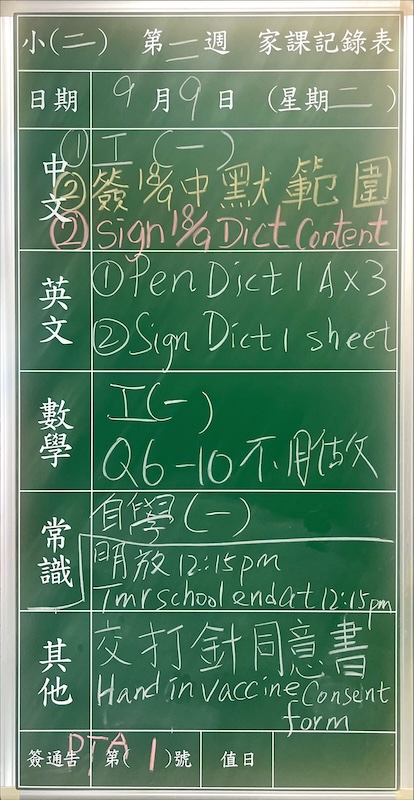 小(二) 第二週 家課記錄表
日期 9月9日 (星期二)
中文
① 工(一)
② 簽18/9中默範圍
② Sign 18/9 Dict Content
英文
① Pen Dict 1 A x 3
② Sign Dict 1 sheet
數學
工(一)
Q6-10 不用做
常識
自學(一)
明放 12:15pm
Tmr school end at 12:15pm
其他
交打針同意書
Hand in vaccine Consent
form
簽通告 PTA 第(1)號 值日